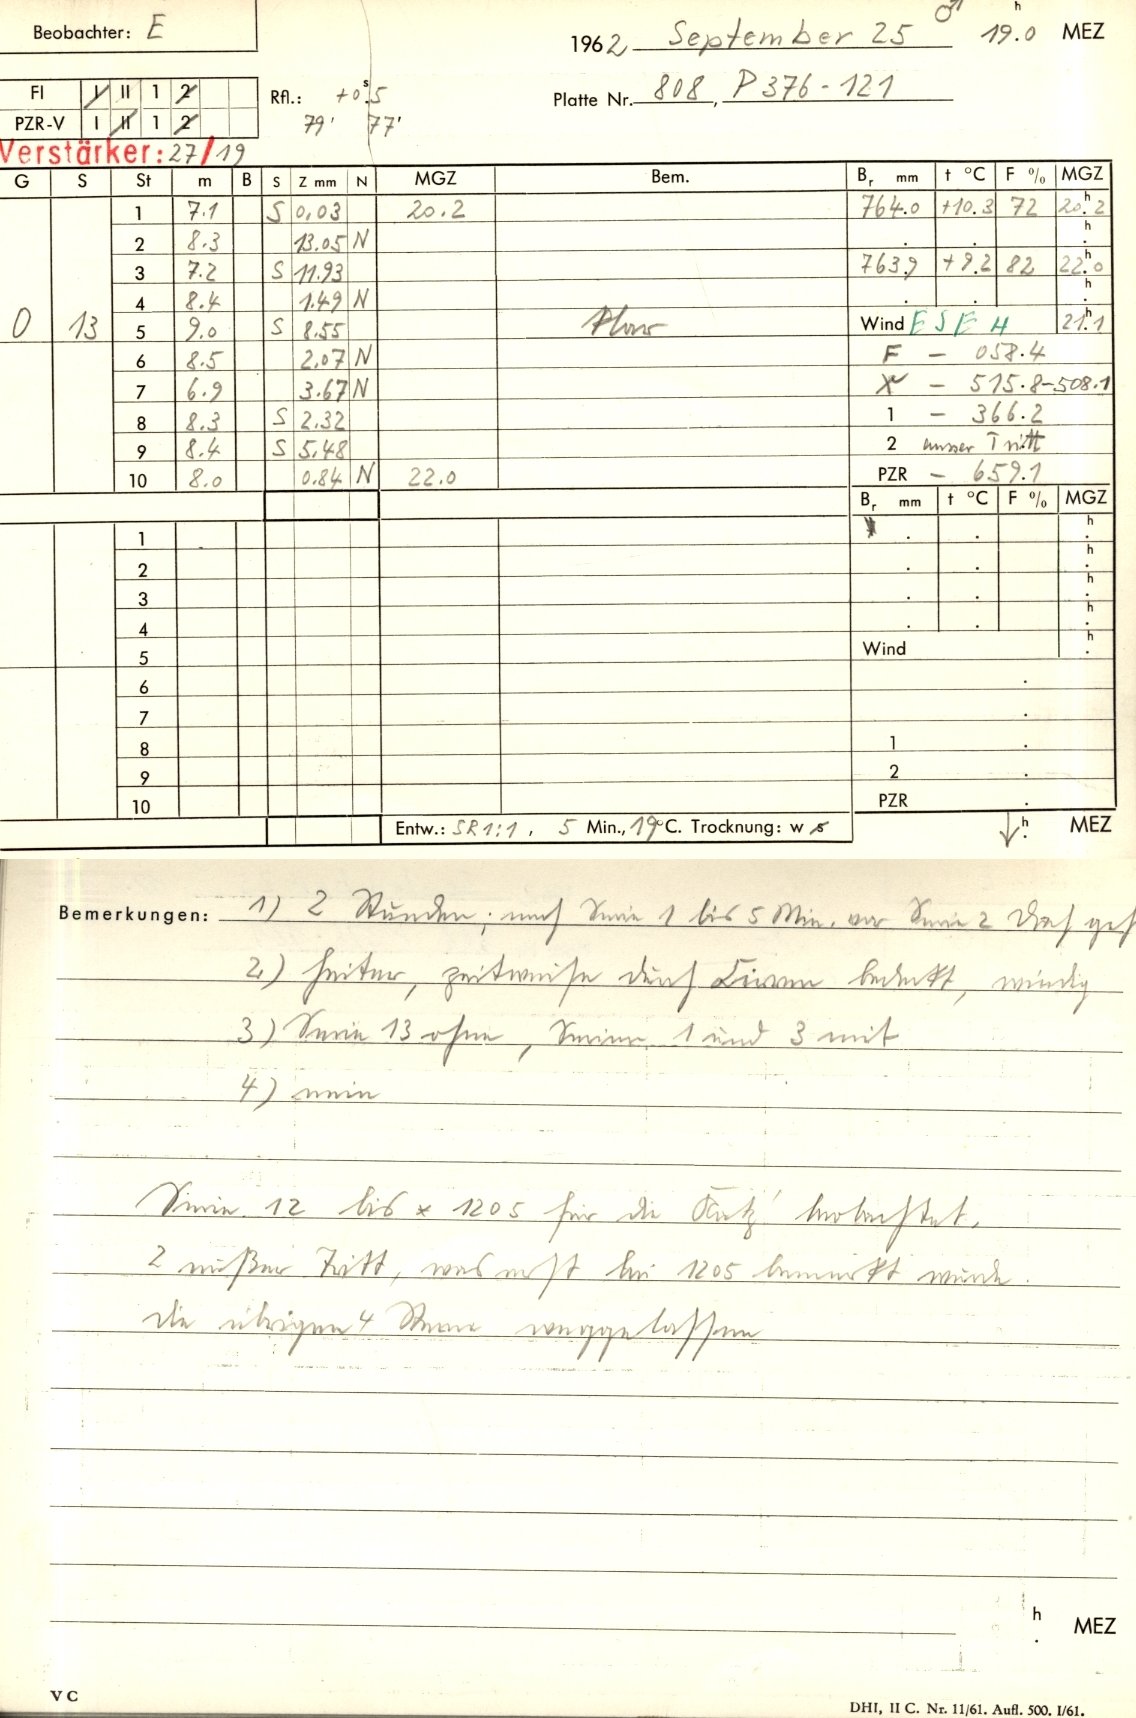 Beobachter: E
1962 September 25 ♂ 19.0 h MEZ
FI I II 1 2
Rfl.: +0.5 s
Platte Nr. 808, P 376-121
PZR-V I II 1 2
79' 77'
Verstärker: 27/19
G S St m B S Z mm N MGZ Bem. Br mm t °C F % MGZ
1 7.1 S 0,03 20.2 764.0 +10.3 72 20.2 h
2 8.3 13.05 N . . h .
3 7.2 S 11.93 763.9 +9.2 82 22.0 h
4 8.4 1.49 N . . h .
0 13 5 9.0 S 8.55 klar Wind ESE 4 21.1 h
6 8.5 2.07 N F - 058.4
7 6.9 3.67 N - 515.8-508.1
8 8.3 S 2.32 1 - 366.2
9 8.4 S 5.48 2 ausser Tritt
10 8.0 0.84 N 22.0 PZR - 659.1
Br mm t °C F % MGZ
1 . . h .
2 . . h .
3 . . h .
4 . . h .
5 Wind h .
6 .
7 .
8 1 .
9 2 .
10 PZR .
Entw.: SR 1:1, 5 Min., 19 °C. Trocknung: w s h . MEZ
Bemerkungen: 1) 2 Stunden; nach Serie 1 bis 5 Min. vor Serie 2 Dach
2) heiter, zeitweise durch Cirren bedeckt, windig
3) Serie 13 ohne, Serien 1 und 3 mit
4) nein
Serie 12 bis * 1205 für die Katz' beobachtet,
2 außer Tritt, was erst bei 1205 bemerkt wurde.
die übrigen 4 Sterne weggelassen
h . MEZ
V C
DHI, II C. Nr. 11/61. Aufl. 500. I/61.